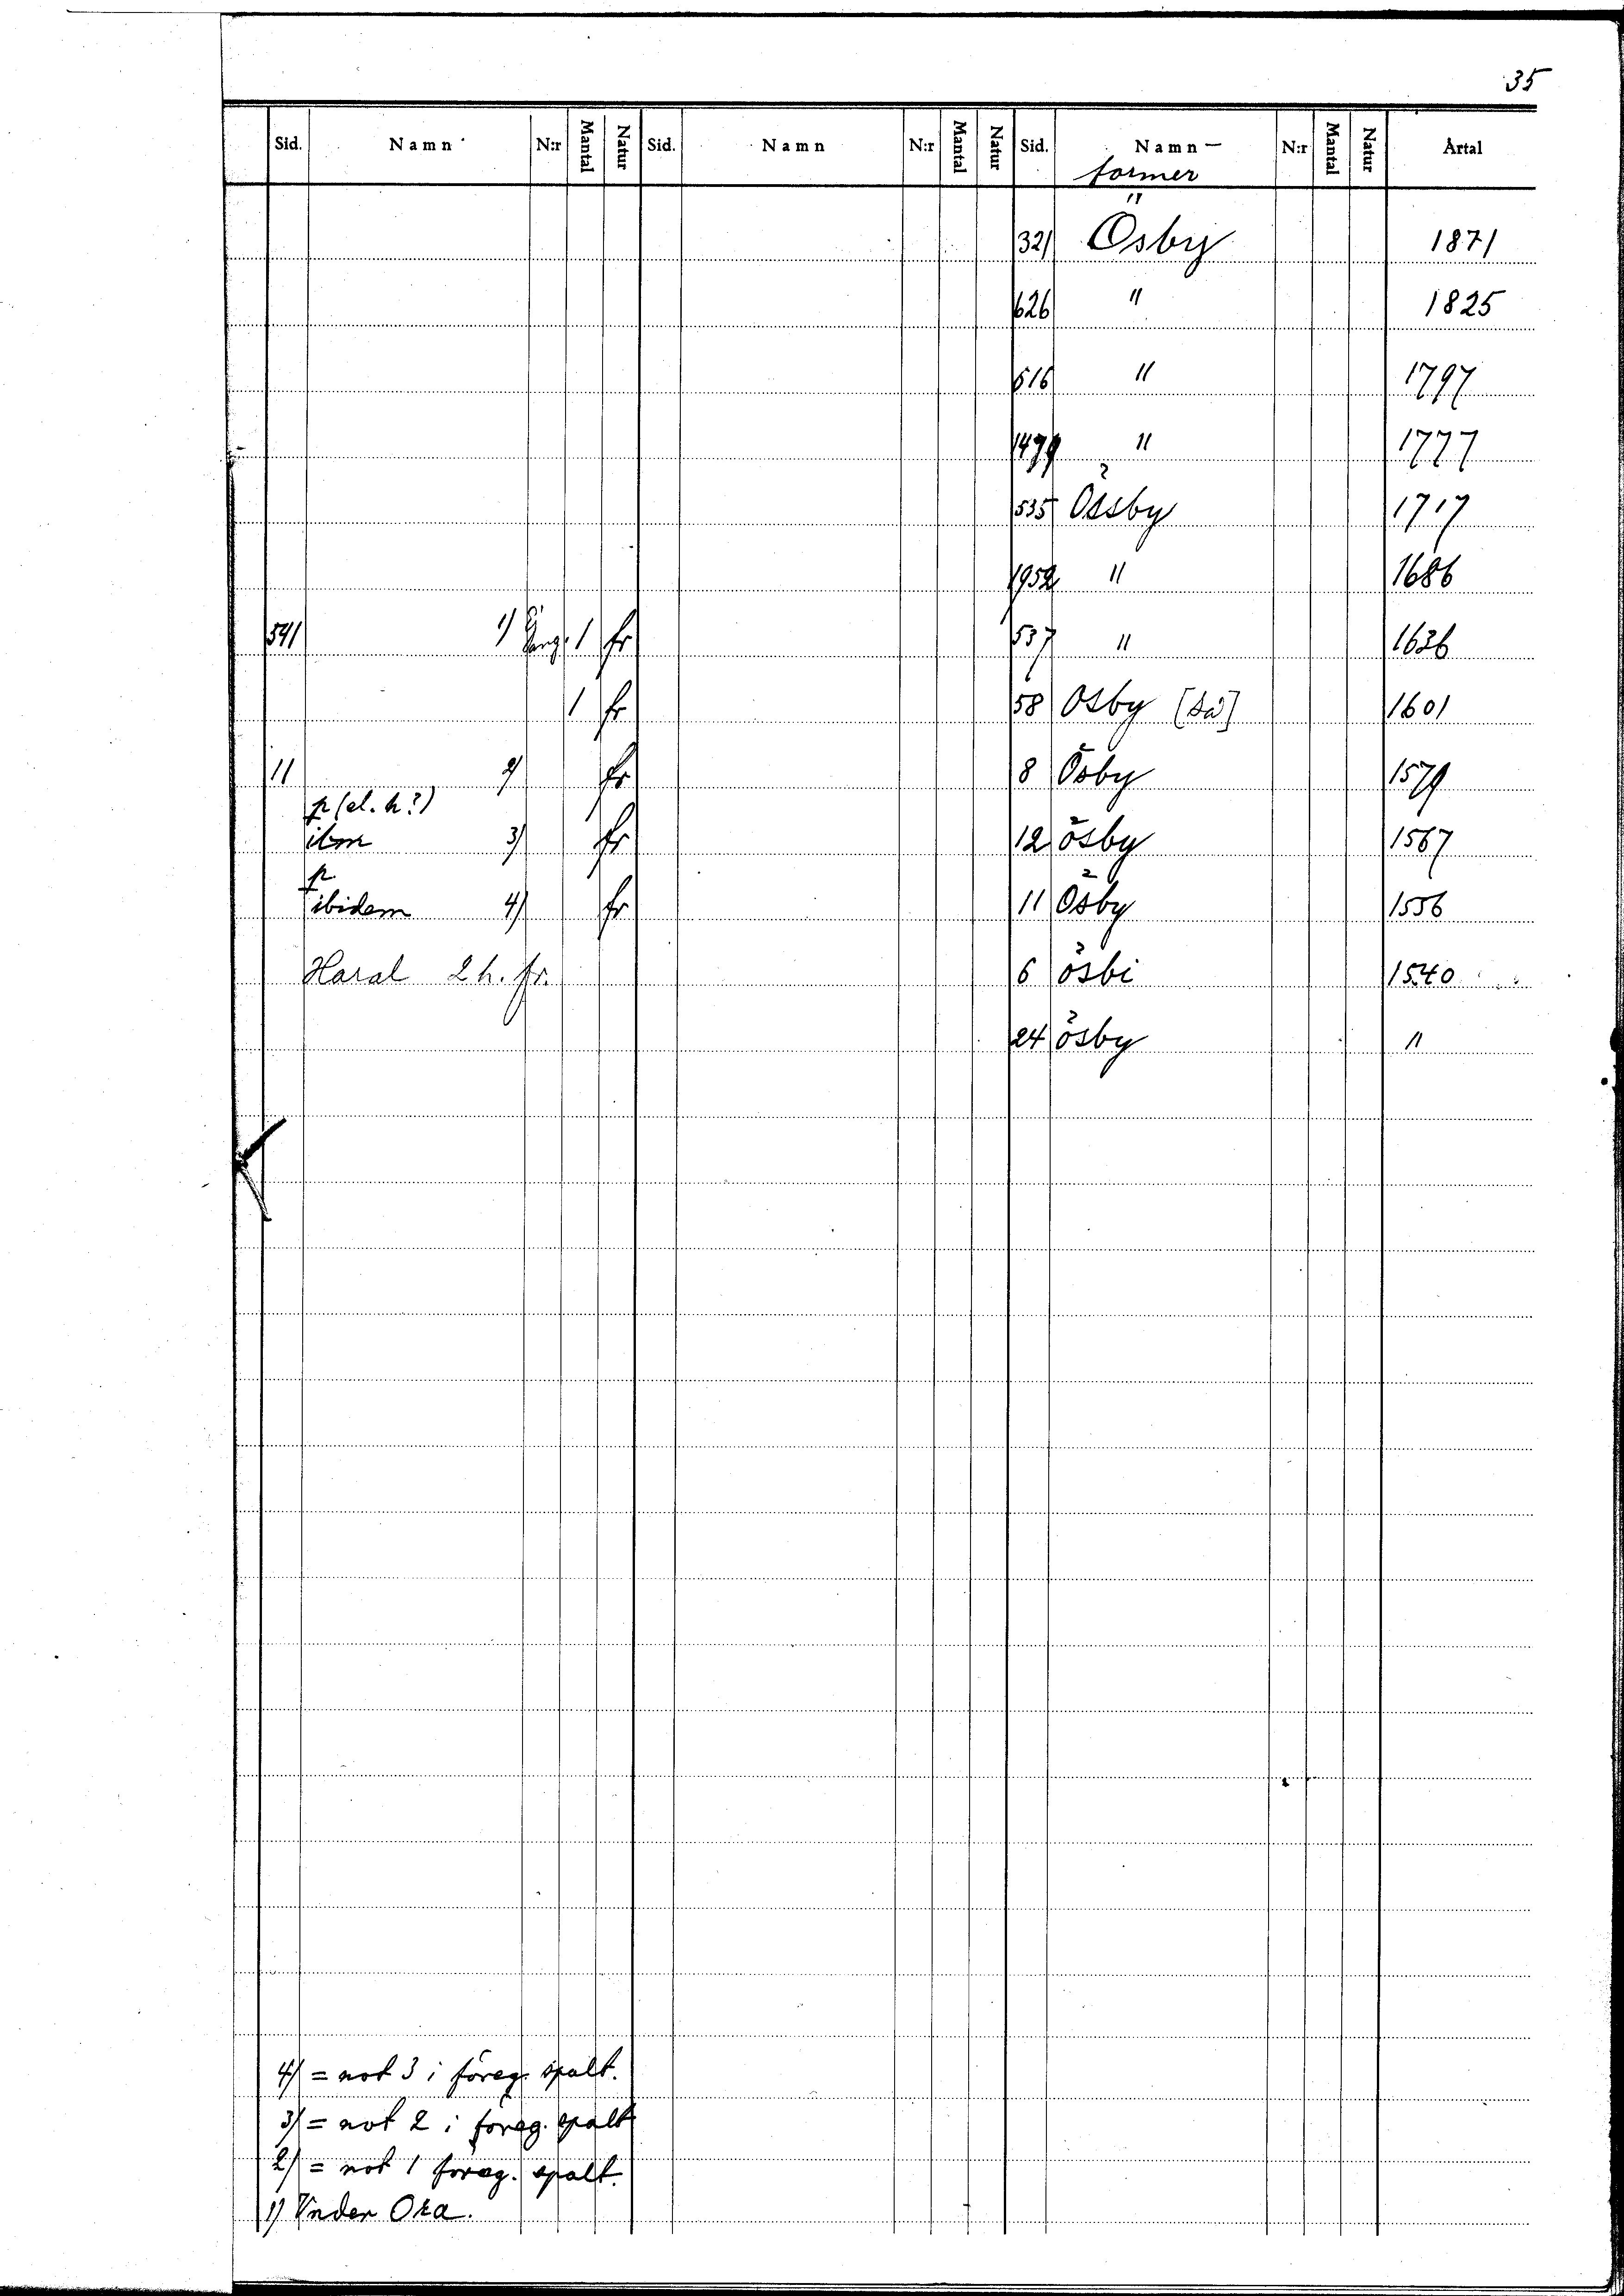 35
Sid. Namn N:r Mantal Natur Sid. Namn N:r Mantal Natur Sid. Namn- N:r Mantal Natur Årtal
former
321 Ösby 1871
626 " 1825
516 " 1797
1479 " 1777
535 Össby 1717
1952 " 1686
541 1) 1 fr 537 " 1636
1 fr 58 Osby [så] 1601
11 2) fr 8 Ösby 1579
p (el. h?)
ibm 3) fr 12 ösby 1567
p
ibidem 4) fr 11 Ösby 1556
Haral 2 h. fr. 6 ösbi 1540
24 ösby "
4) = not 3 i föreg. spalt.
3) = not 2 i föreg. spalt
2) = not 1 föreg. spalt.
1) Vnder Ora.